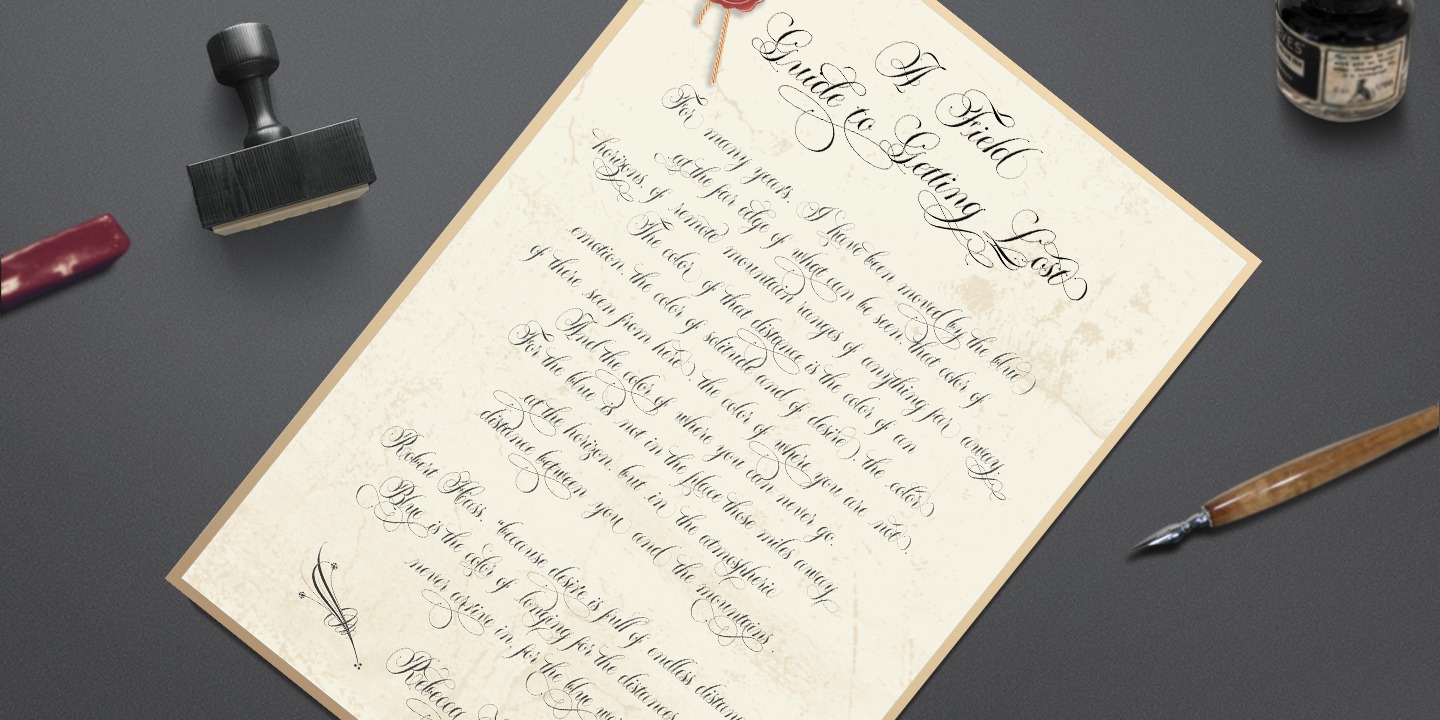 A Field
Guide to Getting Lost
For many years, I have been moved by the blue
at the far edge of what can be seen, that color of
horizons, of remote mountain ranges of anything far away.
The color of that distance is the color of an
emotion, the color of solitude and of desire, the color
of there seen from here, the color of where you are not.
And the color of where you can never go.
For the blue is not in the place those miles away
at the horizon, but in the atmospheric
distance between you and the mountains.
Robert Hass, "because desire is full of endless
Blue is the color of longing for the distances
never arrive in, for the blue
Rebecca